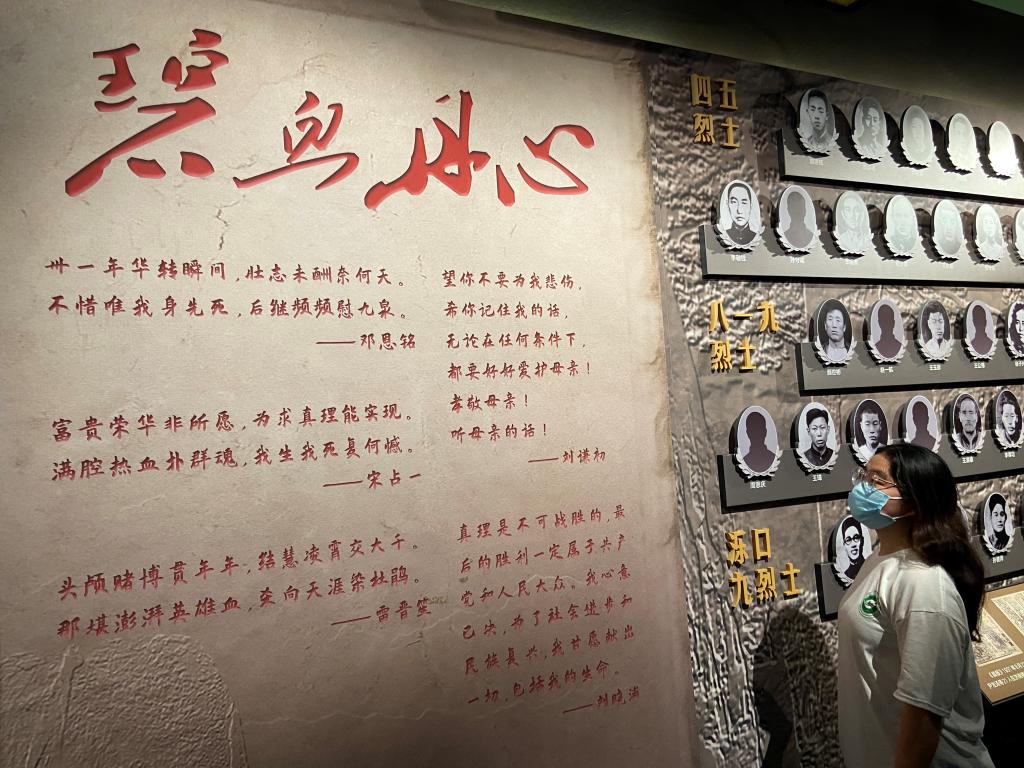 碧血丹心
卅一年华转瞬间,壮志未酬奈何天。
不惜唯我身先死,后继频频慰九泉。
——邓恩铭
富贵荣华非所愿,为求真理能实现。
满腔热血扑群魂,我生我死复何憾。
——宋占一
头颅赌博贯年年,结慧凌霄交大千。
那堪澎湃英雄血,奕向天涯染杜鹃。
——雷晋笙
望你不要为我悲伤,
希你记住我的话,
无论在任何条件下,
都要好好爱护母亲!
孝敬母亲!
听母亲的话!
——刘谦初
真理是不可战胜的,最
后的胜利一定属于共产
党和人民大众。我心意
已决,为了社会进步和
民族复兴,我甘愿献出
一切,包括我的生命。
——刘晓浦
四五
烈士
八一九
烈士
泺口
九烈士